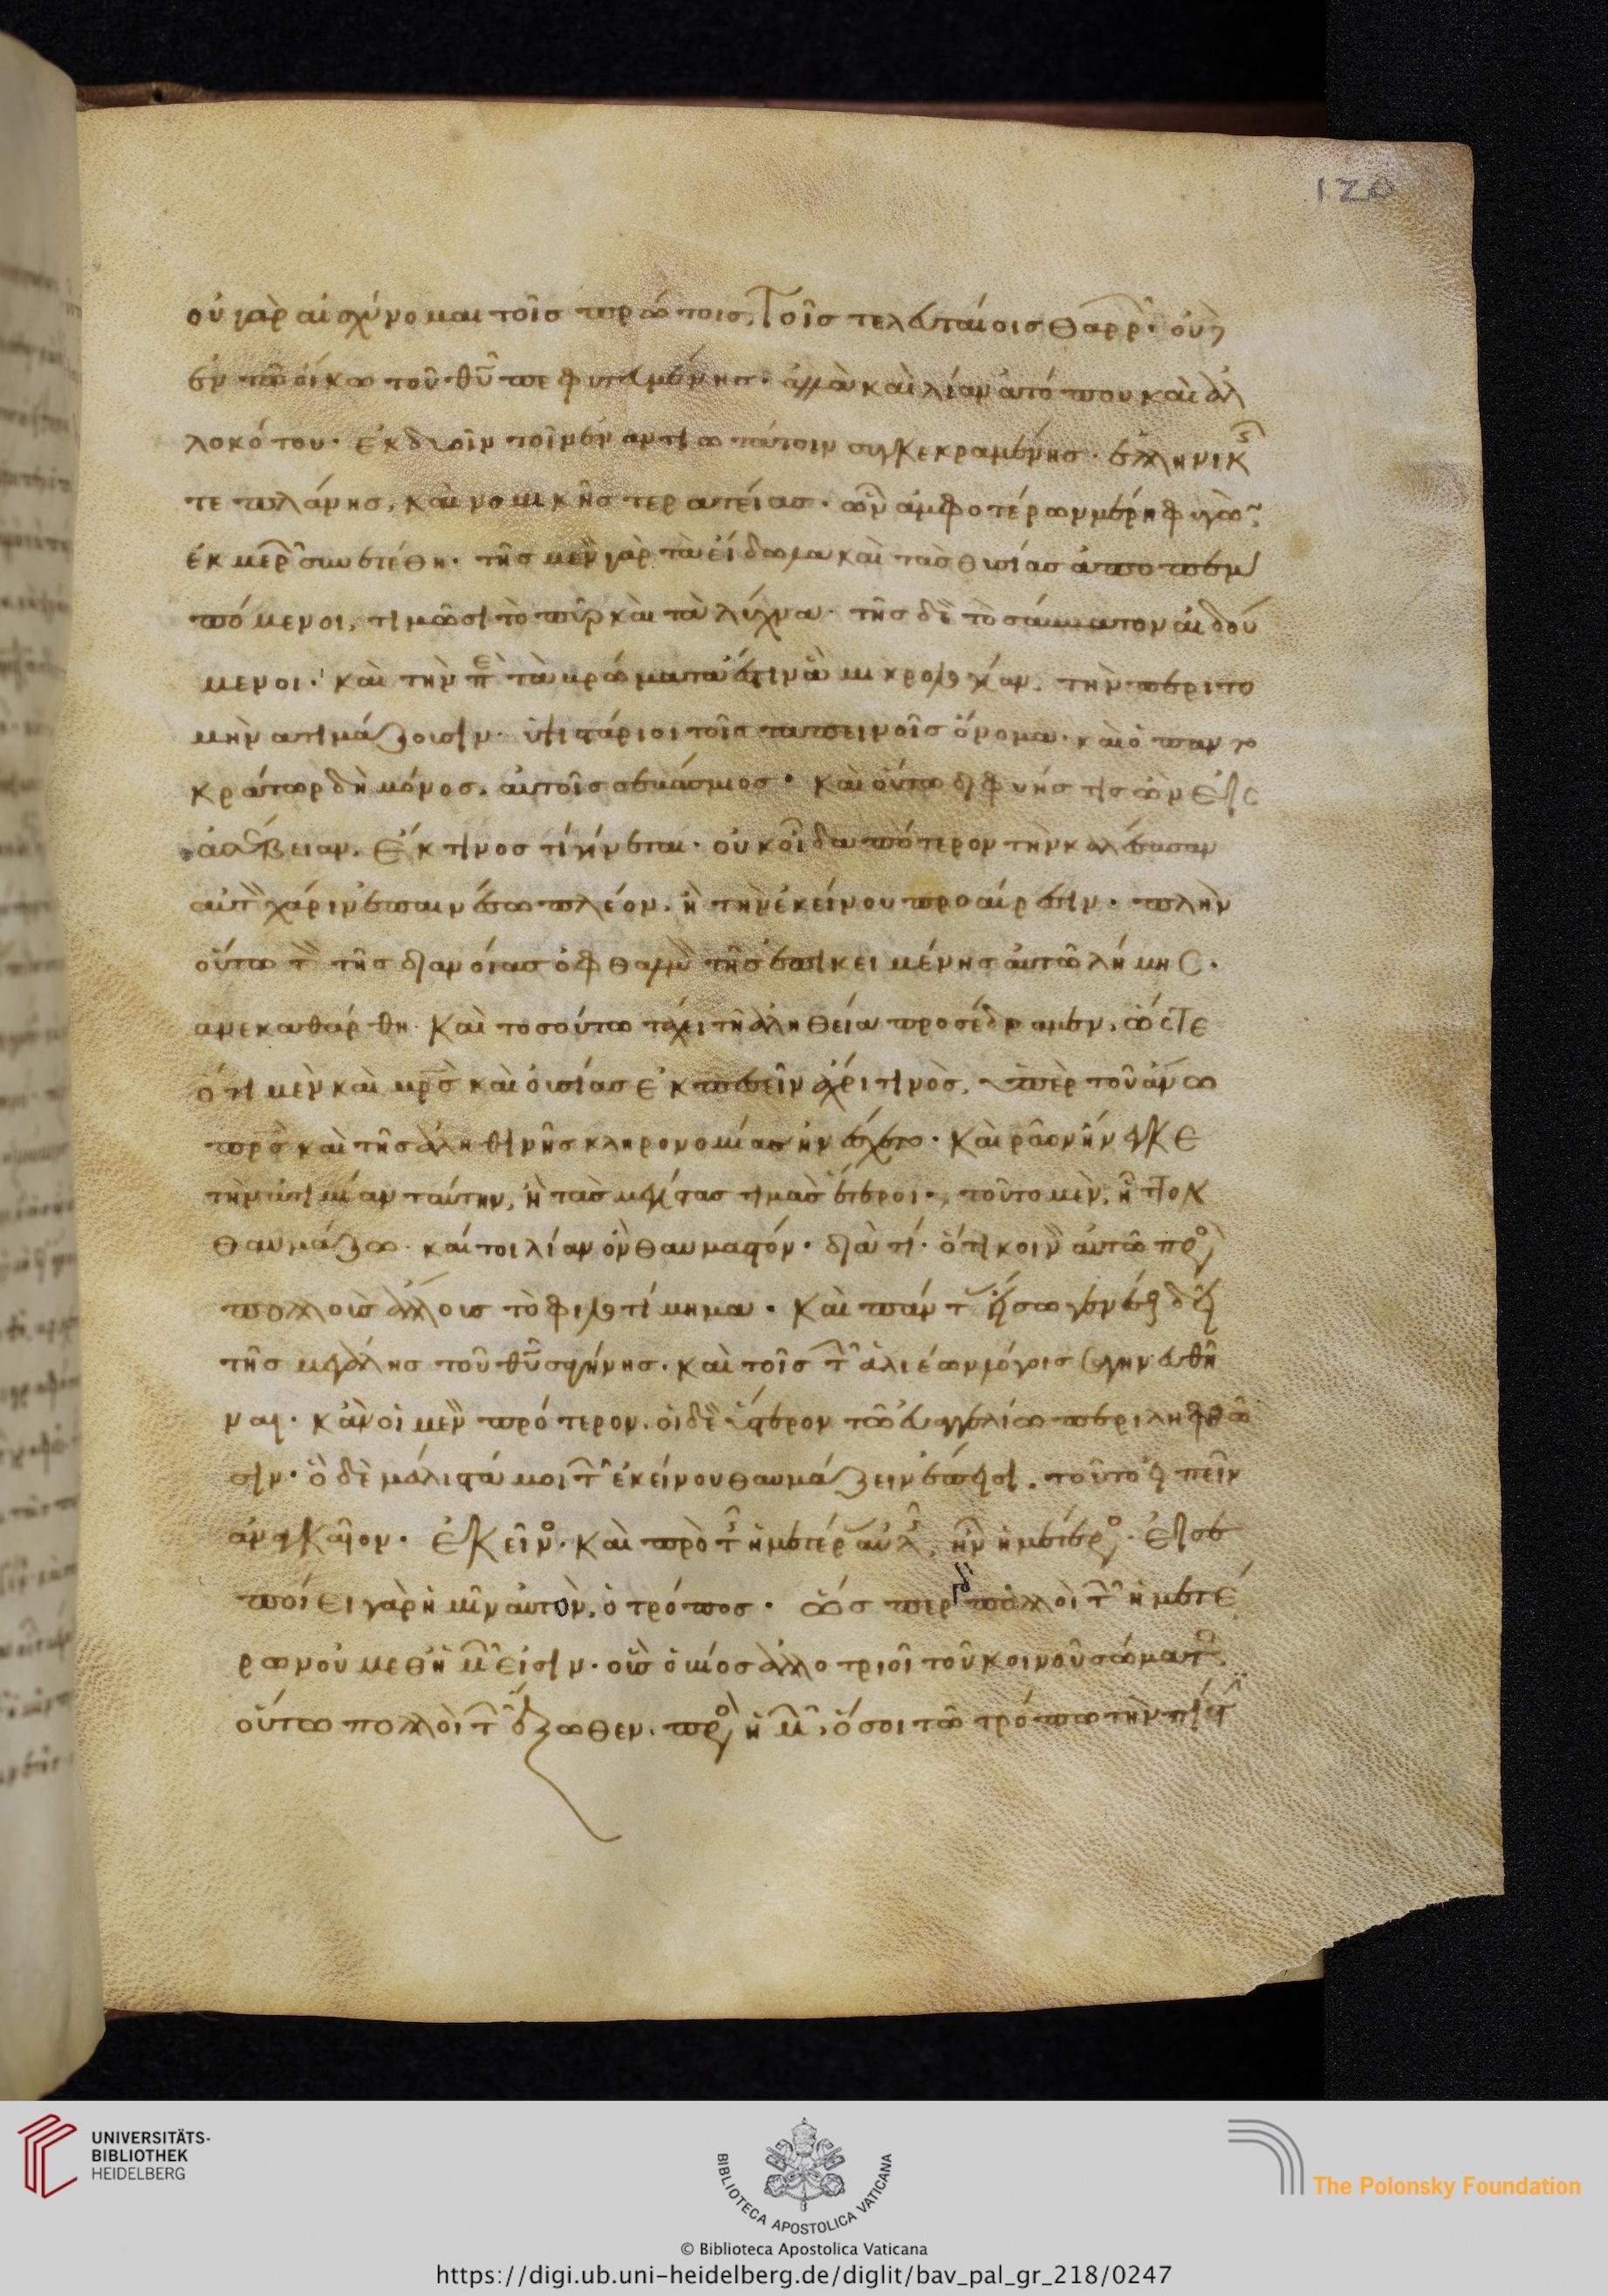 οὐ γὰρ αἰσχύνομαι τοῖς πρώτοις, τοῖς τελευταίοις θαρρῶν· οὐκ
ἐν τῶ οἴκω τοῦ θῦ πεφυτευμένης· ἀλλὰ καὶ λίαν ἀτόπου καὶ ἀλ
λοκότου· ἐκ δυοῖν τοῖν ἐναντιωτάτοιν συγκεκραμένης· ἑλληνικῆς
τε πλάνης, καὶ νομικῆς τερατείας· ὧν ἀμφοτέρων μέρη φυγὼν
ἐκ μερῶν συνετέθη· τῆς μὲν γὰρ τὰ εἴδωλα καὶ τὰς θυσίας ἀποπεμ
πόμενοι, τιμῶσι τὸ πῦρ καὶ τὰ λύχνα· τῆς δὲ τὸ σάββατον αἰδού
μενοι· καὶ τὴν περὶ τὰ βρώματα ἔστιν ἃ μικρολογίαν, τὴν περιτο
μὴν ἀτιμάζουσιν· ὑψιστάριοι τοῖς ταπεινοῖς ὄνομα· καὶ ὁ παντο
κράτωρ δὴ μόνος, αὐτοῖς σεβάσμιος· καὶ οὕτω διφυής τις ὢν εἰς
ἀσέβειαν, ἐκ τίνος τί γίνεται· οὐκ οἶδα πότερον τὴν καλέσασαν
αὐτὸν χάριν ἐπαινέσω πλέον, ἢ τὴν ἐκείνου προαίρεσιν· πλὴν
οὕτω τὸν τῆς διανοίας ὀφθαλμὸν τῆς ἐπικειμένης αὐτῶ λήμης
ἀνεκαθάρθη· καὶ τοσούτω τάχει τῆ ἀληθεία προσέδραμεν, ὥστε
ὅτι μὲν καὶ μρς καὶ οὐσίας ἐκπεσεῖν ἄχρι τινὸς, ὑπὲρ τοῦ ἄνω
πρς καὶ τῆς ἀληθινῆς κληρονομίας ἠνέσχετο· καὶ ρᾶον ἤνεγκε
τὴν ἀτιμίαν ταύτην, ἢ τὰς μεγίστας τιμὰς ἕτεροι· τοῦτο μὲν, ἧττον
θαυμάζω· καίτοι λίαν ὂν θαυμαστόν· διὰ τί· ὅτι κοινὸν αὐτῶ πρὸς
πολλοὺς ἄλλους τὸ φιλοτίμημα· καὶ πάντας εἴσω γενέσθαι δεῖ
τῆς μεγάλης τοῦ θῦ σαγήνης· καὶ τοῖς τῶν ἁλιέων λόγοις σαγηνευθῆ
ναι· κἂν οἱ μὲν πρότερον, οἱ δὲ ὕστερον τῶ εὐαγγελίω περιληφθῶ
σιν· ὃ δὲ μάλιστά μοι τῶν ἐκείνου θαυμάζειν ἔπεισι, τοῦτο εἰπεῖν
ἀναγκαῖον· ἐκεῖνος καὶ πρὸ τῆς ἡμετέρας αὐλῆς, ἦν ἡμέτερος· εἰσε
ποίει γὰρ ἡμῖν αὐτὸν, ὁ τρόπος· ὥσπερ δ πολλοὶ τῶν ἡμετέ
ρων οὐ μεθ' ἡμῶν εἰσιν· οὓς ὁ βίος ἀλλοτριοῖ τοῦ κοινοῦ σώματος·
οὕτω πολλοὶ τῶν ἔξωθεν, πρὸς ἡμῶν, ὅσοι τῶ τρόπω τὴν πίστιν
120
UNIVERSITÄTS-
BIBLIOTHEK
HEIDELBERG
BIBLIOTECA APOSTOLICA VATICANA
The Polonsky Foundation
© Biblioteca Apostolica Vaticana
https://digi.ub.uni-heidelberg.de/diglit/bav_pal_gr_218/0247